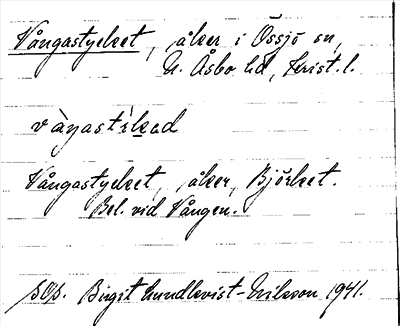 Vångastycket, åker i Össjö sn,
N. Åsbo hd, Krist. l.
Vångastycket, åker, Björket.
Bel. vid Vången.
sOp. Birgit Lundkvist-Nilsson 1941.